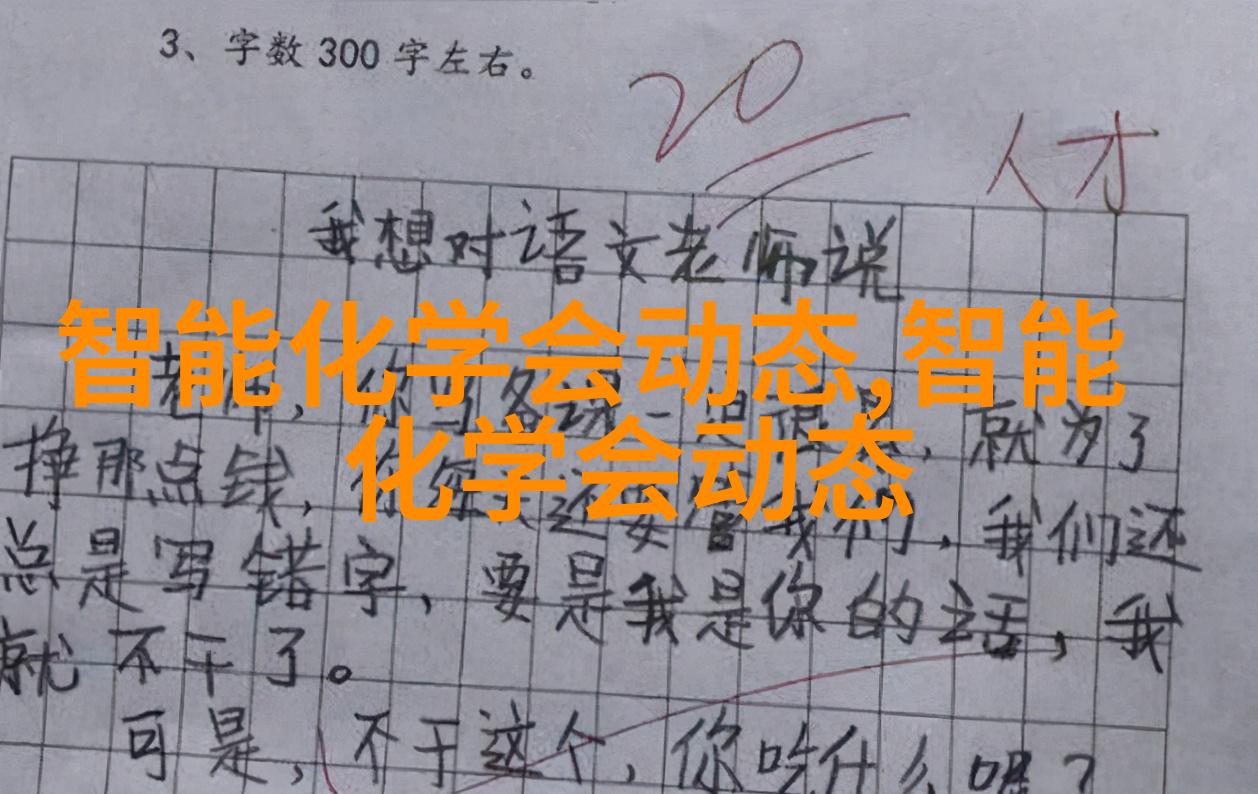 3、字数300字左右。
20
人才
我想对语文老师说
智能化学会动态,智能
化学会动态
老师,你可各
,就为了
挣那点钱,你
还要管我们,我们还
总是写错字,要是我是你的话,我
就不干了。
可是,不干这个,你吃什么呢?